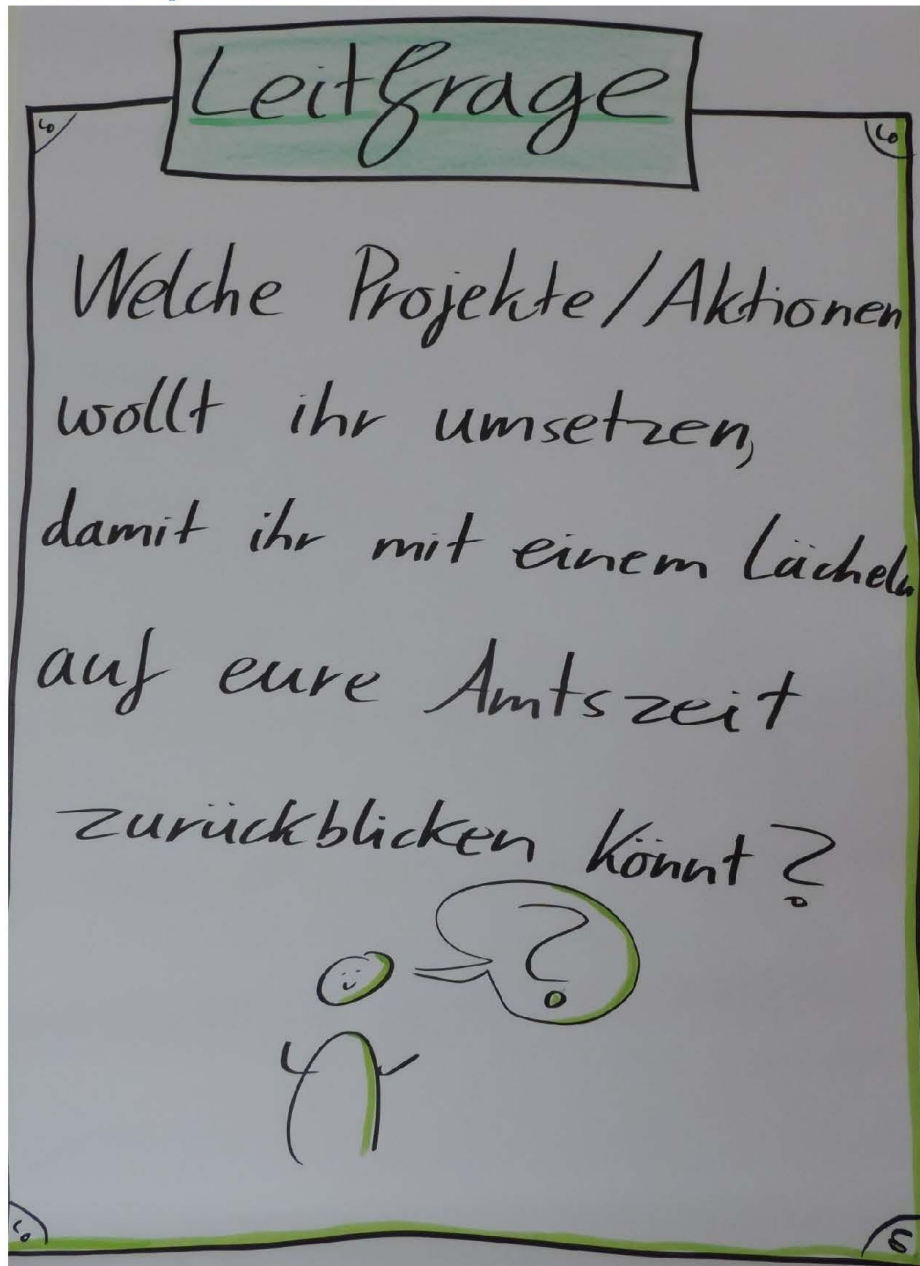 Leitfrage
Welche Projekte/Aktionen
wollt ihr umsetzen,
damit ihr mit einem Lächeln
auf eure Amtszeit
zurückblicken könnt?
?